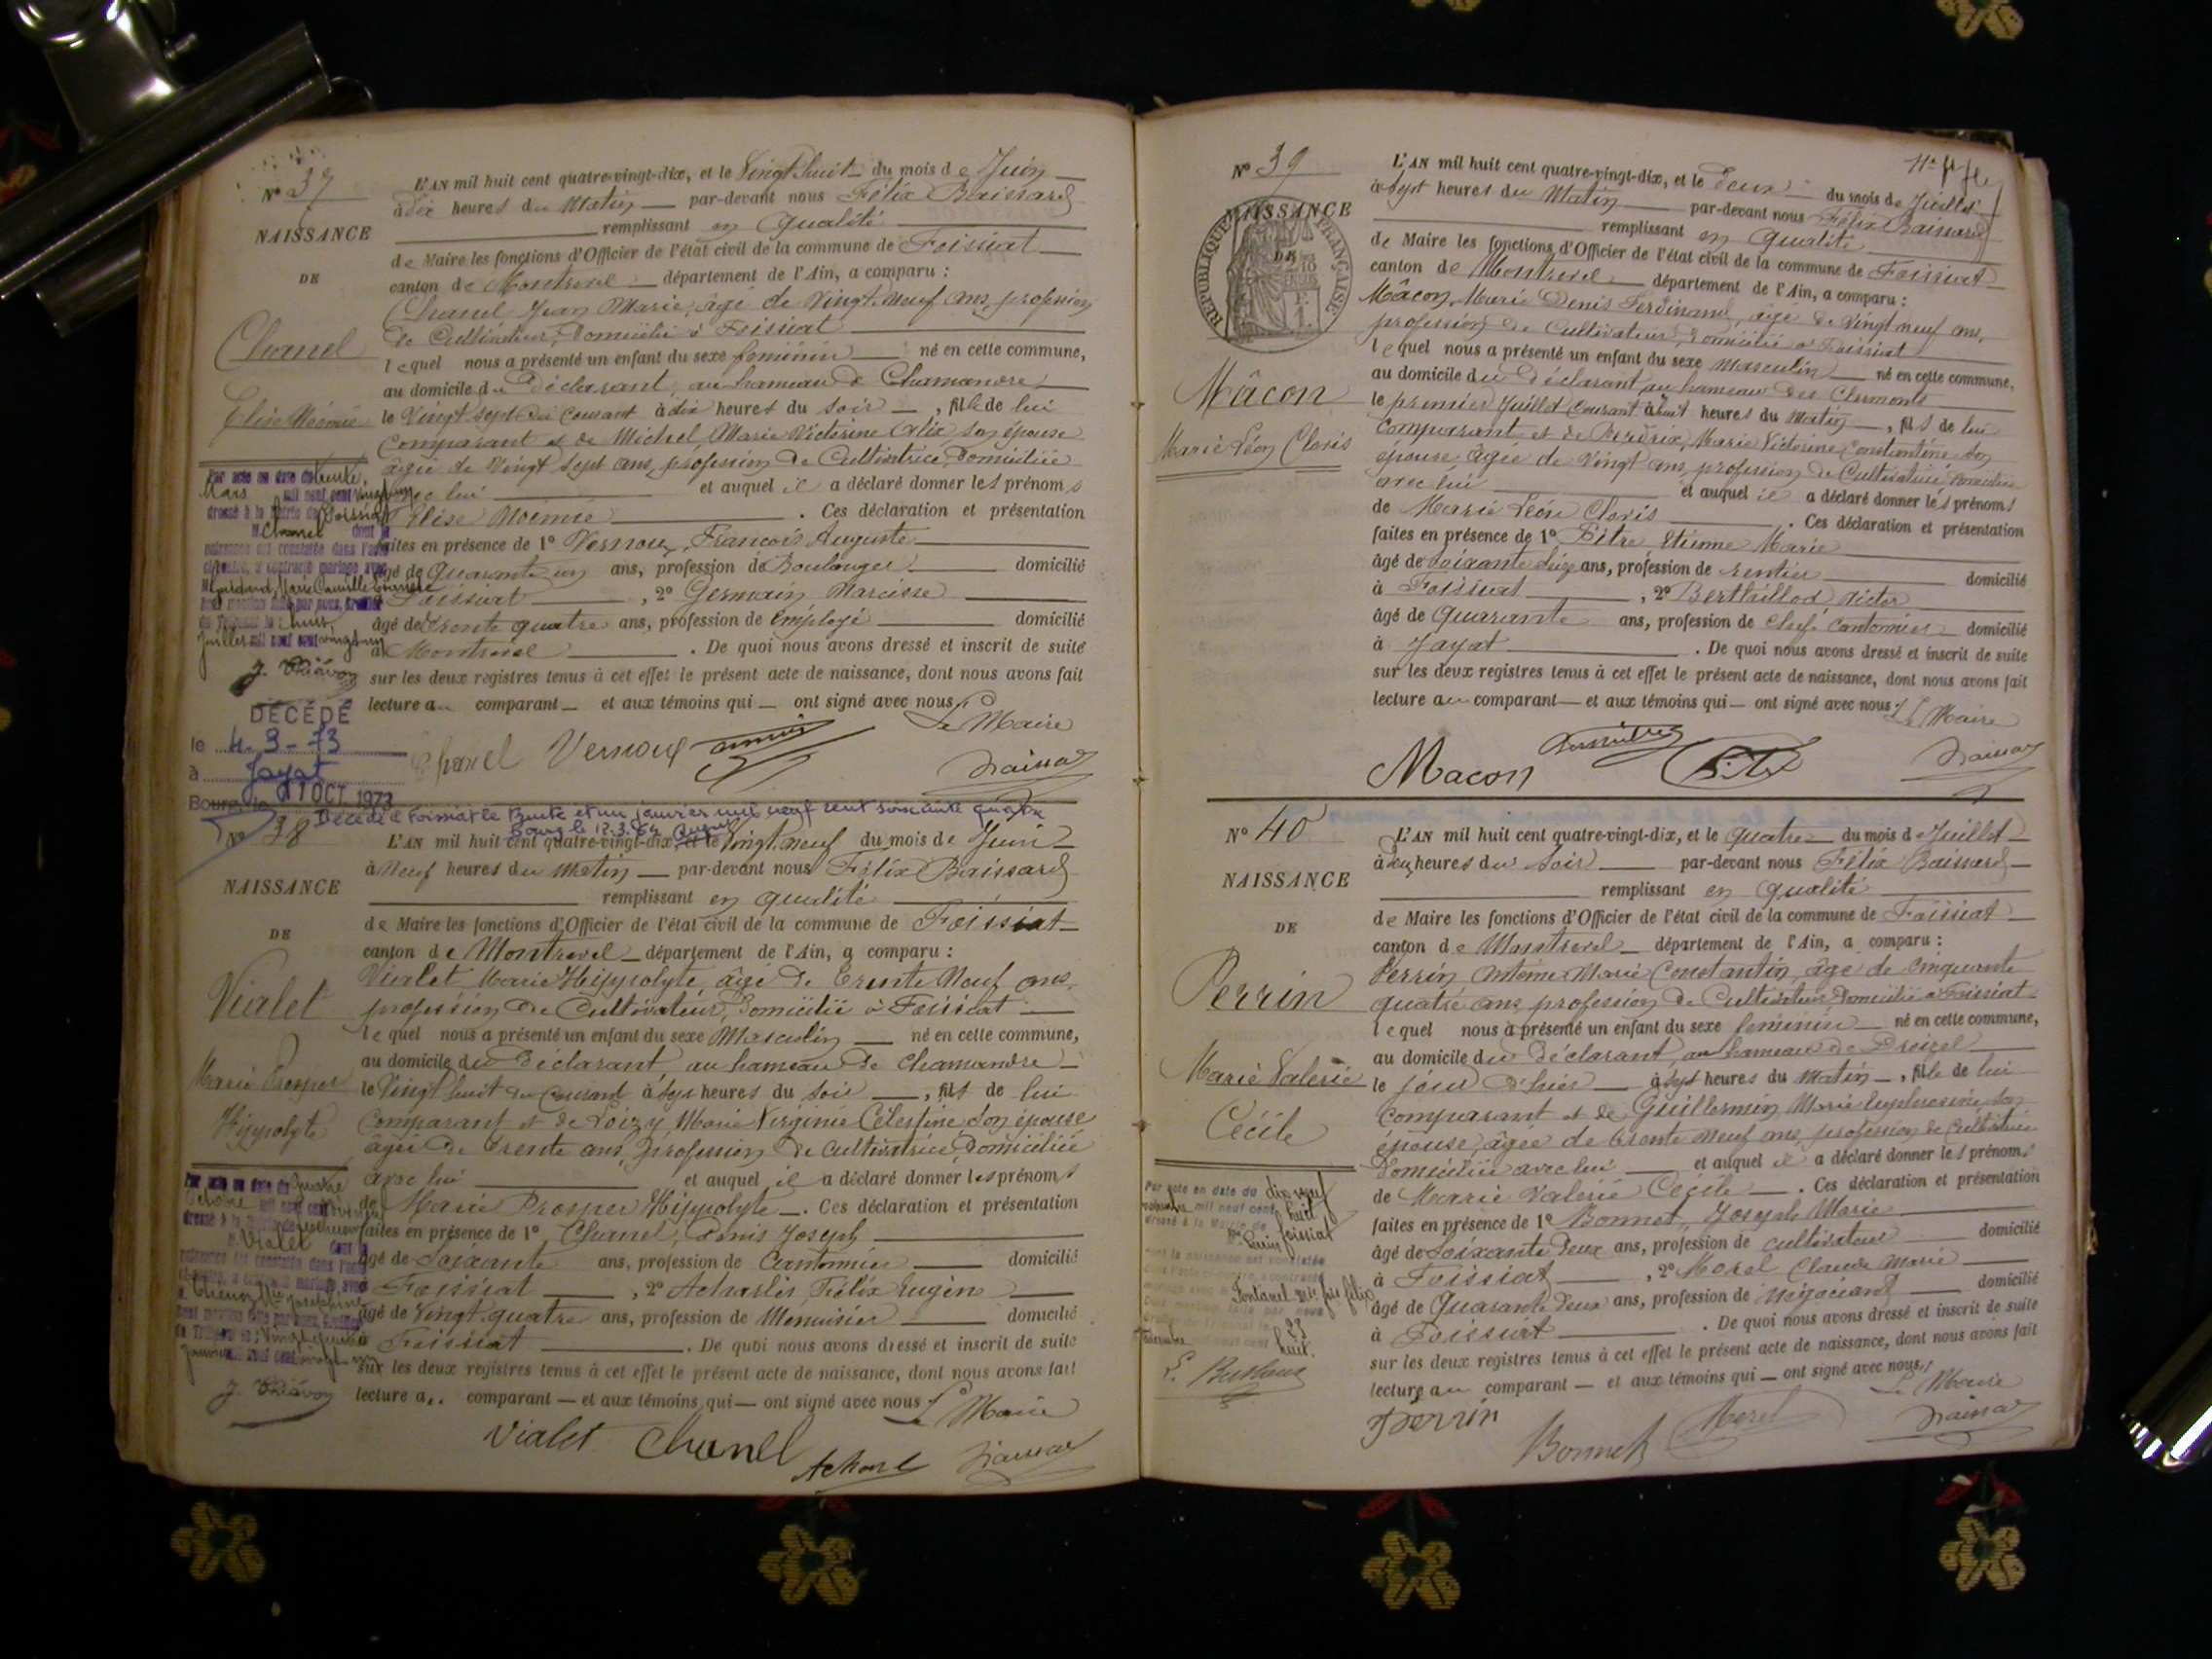 N° 37
NAISSANCE
DE
Chanel
Elise Noémie
L'AN mil huit cent quatre-vingt-dix, et le Vingt huit du mois de Juin
à dix heures du Matin par-devant nous Félix Baissard
remplissant en qualité
de Maire les fonctions d'Officier de l'état civil de la commune de Foissiat
canton de Montrevel département de l'Ain, a comparu :
Chanel Jean Marie, âgé de Vingt neuf ans, profession
de Cultivateur, Domicilié à Foissiat
lequel nous a présenté un enfant du sexe féminin né en cette commune,
au domicile du Déclarant au hameau de Chamandre
le Vingt sept du Courant à dix heures du soir, fille de lui
Comparant et de Michel, Marie Victorine Alix son épouse
âgée de Vingt sept ans, profession de Cultivatrice, Domiciliée
avec lui et auquel il a déclaré donner les prénoms
Elise Noémie. Ces déclaration et présentation
faites en présence de 1° Vernoux, François Auguste
âgé de Quarante un ans, profession de Boulanger domicilié
à Foissiat, 2° Germain Narcisse
âgé de Trente quatre ans, profession de Employé domicilié
à Montrevel. De quoi nous avons dressé et inscrit de suite
sur les deux registres tenus à cet effet le présent acte de naissance, dont nous avons fait
lecture au comparant et aux témoins qui ont signé avec nous
Le Maire
Chanel Vernoux
Par acte en date du trente
Mars mil neuf cent vingt un
dressé à la Mairie de Foissiat
Chanel dont la
naissance est constatée dans l'acte
ci-contre, a contracté mariage avec
J. Thiévon
DÉCÉDÉ
le 4-9-73
à Jayat
Bourg, le 1 OCT. 1973
Décédé à Foissiat le trente et un janvier mil neuf cent soixante quatre
Bourg le 12.3.64
N° 38
NAISSANCE
DE
Vialet
Marie Prosper
Hippolyte
L'AN mil huit cent quatre-vingt-dix, et le Vingt neuf du mois de Juin
à Neuf heures du Matin par-devant nous Félix Baissard
remplissant en qualité
de Maire les fonctions d'Officier de l'état civil de la commune de Foissiat
canton de Montrevel département de l'Ain, a comparu :
Vialet Marie Hippolyte, âgé de Trente Neuf ans,
profession de Cultivateur, Domicilié à Foissiat
lequel nous a présenté un enfant du sexe Masculin né en cette commune,
au domicile du Déclarant au hameau de Chamandre
le Vingt huit du Courant à sept heures du soir, fils de lui
Comparant et de Loizy Marie Virginie Célestine son épouse
âgée de Trente ans, profession de Cultivatrice Domiciliée
avec lui et auquel il a déclaré donner les prénoms
de Marie Prosper Hippolyte. Ces déclaration et présentation
faites en présence de 1° Chanel, Denis Joseph
âgé de Soixante ans, profession de Cantonnier domicilié
à Foissiat, 2° Acharlis, Félix Eugène
âgé de Vingt quatre ans, profession de Menuisier domicilié
à Foissiat. De quoi nous avons dressé et inscrit de suite
sur les deux registres tenus à cet effet le présent acte de naissance, dont nous avons fait
lecture au comparant et aux témoins qui ont signé avec nous
Le Maire
Vialet Chanel
Par acte en date du quatre
Octobre mil neuf cent
Vialet dont la
J. Thiévon
N° 39
NAISSANCE
DE
RÉPUBLIQUE FRANÇAISE
Mâcon
Marie Léon Clovis
L'AN mil huit cent quatre-vingt-dix, et le Deux du mois de Juillet
à sept heures du Matin par-devant nous Félix Baissard
remplissant en qualité
de Maire les fonctions d'Officier de l'état civil de la commune de Foissiat
canton de Montrevel département de l'Ain, a comparu :
Mâcon, Marie Denis Ferdinand, âgé de Vingt neuf ans,
profession de Cultivateur, Domicilié à Foissiat
lequel nous a présenté un enfant du sexe Masculin né en cette commune,
au domicile du Déclarant au hameau des Clermonts
le premier Juillet Courant à huit heures du Matin, fils de lui
Comparant et de Perdrix, Marie Victorine Constantine son
épouse âgée de Vingt ans, profession de Cultivatrice Domiciliée
avec lui et auquel il a déclaré donner les prénoms
de Marie Léon Clovis. Ces déclaration et présentation
faites en présence de 1° Pitre Etienne Marie
âgé de Soixante seize ans, profession de Rentier domicilié
à Foissiat, 2° Berthillod Victor
âgé de Quarante ans, profession de Chef Cantonnier domicilié
à Jayat. De quoi nous avons dressé et inscrit de suite
sur les deux registres tenus à cet effet le présent acte de naissance, dont nous avons fait
lecture au comparant et aux témoins qui ont signé avec nous
Le Maire
Macon
N° 40
NAISSANCE
DE
Perrin
Marie Valerie
Cécile
L'AN mil huit cent quatre-vingt-dix, et le Quatre du mois de Juillet
à heures du soir par-devant nous Félix Baissard
remplissant en qualité
de Maire les fonctions d'Officier de l'état civil de la commune de Foissiat
canton de Montrevel département de l'Ain, a comparu :
Perrin Antoine Marie Constantin, âgé de Cinquante
quatre ans, profession de Cultivateur Domicilié à Foissiat
lequel nous a présenté un enfant du sexe féminin né en cette commune,
au domicile du Déclarant au hameau de
le jour d'hier à sept heures du Matin, fille de lui
Comparant et de Guillermin Marie Euphrosine son
épouse, âgée de trente neuf ans, profession de Cultivatrice
Domiciliée avec lui et auquel il a déclaré donner les prénoms
de Marie Valerie Cécile. Ces déclaration et présentation
faites en présence de 1° Bonnet, Joseph Marie
âgé de Soixante Deux ans, profession de Cultivateur domicilié
à Foissiat, 2° Morel Claude Marie
âgé de Quarante Deux ans, profession de Négociant domicilié
à Foissiat. De quoi nous avons dressé et inscrit de suite
sur les deux registres tenus à cet effet le présent acte de naissance, dont nous avons fait
lecture au comparant et aux témoins qui ont signé avec nous
Le Maire
Perrin
Bonnet Morel
Par acte en date du dix neuf
mil neuf cent huit
dressé à la Mairie de Foissiat